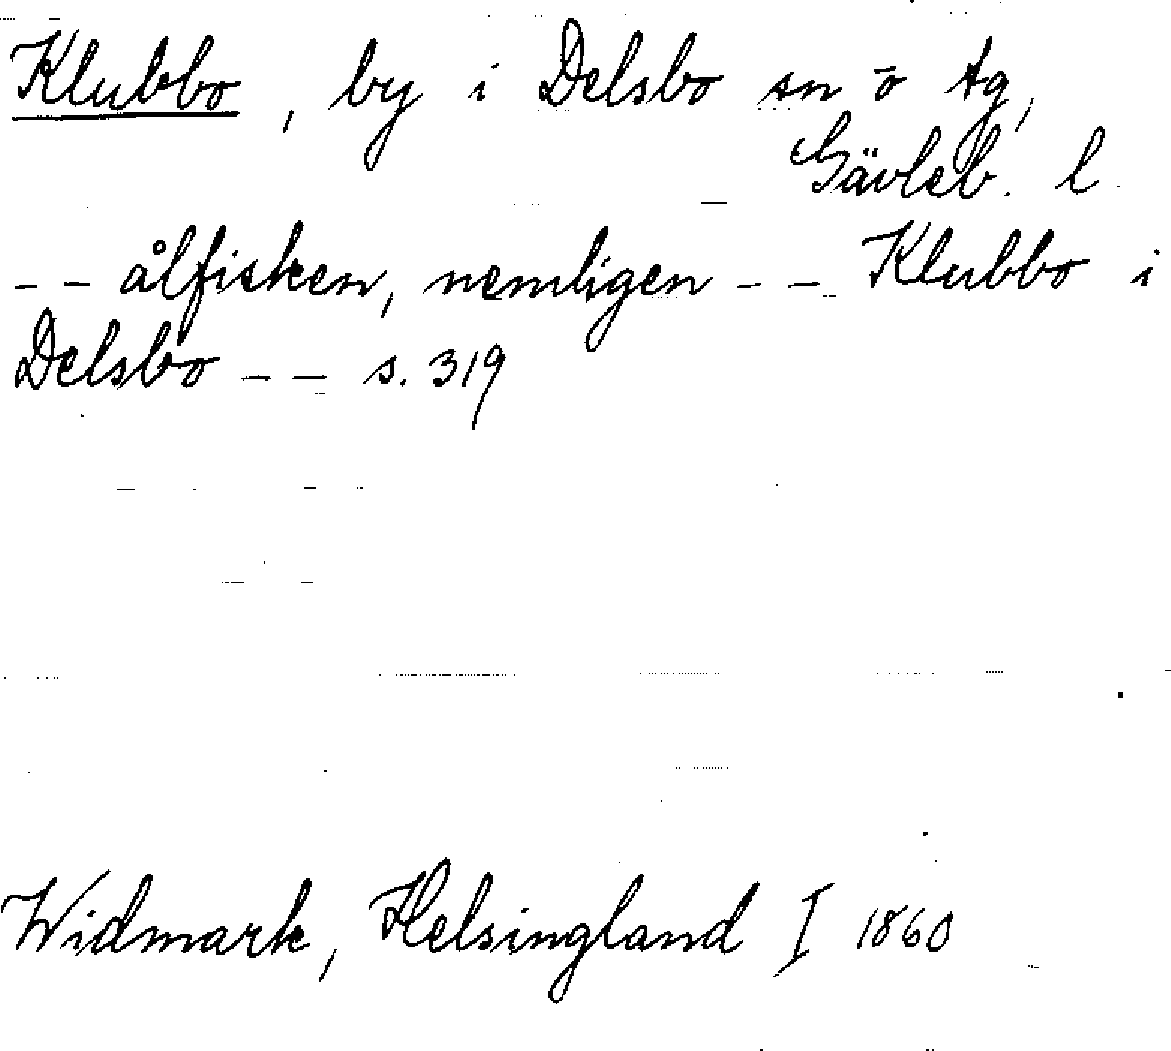 Klubbo, by i Delsbo sn o tg,
Gävleb. l
-- ålfisken, nemligen -- Klubbo i
Delsbo -- s. 319
Widmark, Helsingland I 1860